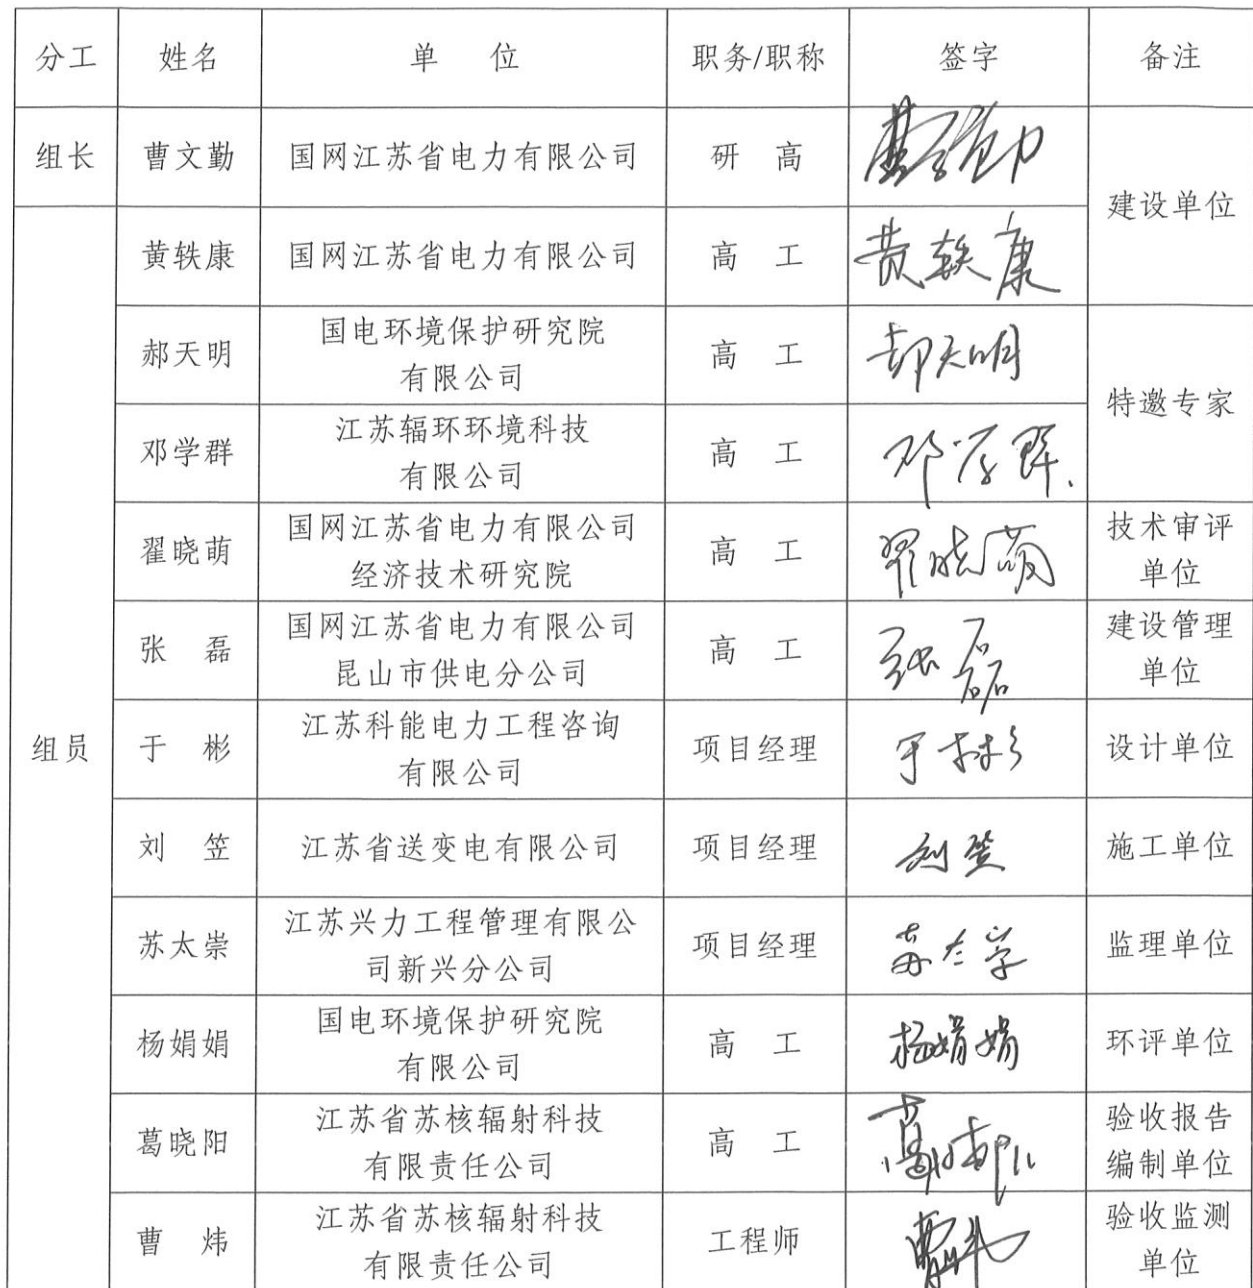 分工 姓名 单 位 职务/职称 签字 备注
组长 曹文勤 国网江苏省电力有限公司 研 高 曹文勤
建设单位
黄轶康 国网江苏省电力有限公司 高 工 黄轶康
郝天明 国电环境保护研究院
有限公司 高 工 郝天明
特邀专家
邓学群 江苏辐环环境科技
有限公司 高 工 邓学群
翟晓萌 国网江苏省电力有限公司
经济技术研究院 高 工 翟晓萌 技术审评
单位
张 磊 国网江苏省电力有限公司
昆山市供电分公司 高 工 张磊 建设管理
单位
组员 于 彬 江苏科能电力工程咨询
有限公司 项目经理 于彬 设计单位
刘 笠 江苏省送变电有限公司 项目经理 刘笠 施工单位
苏太崇 江苏兴力工程管理有限公
司新兴分公司 项目经理 苏太崇 监理单位
杨娟娟 国电环境保护研究院
有限公司 高 工 杨娟娟 环评单位
葛晓阳 江苏省苏核辐射科技
有限责任公司 高 工 葛晓阳 验收报告
编制单位
曹 炜 江苏省苏核辐射科技
有限责任公司 工程师 曹炜 验收监测
单位